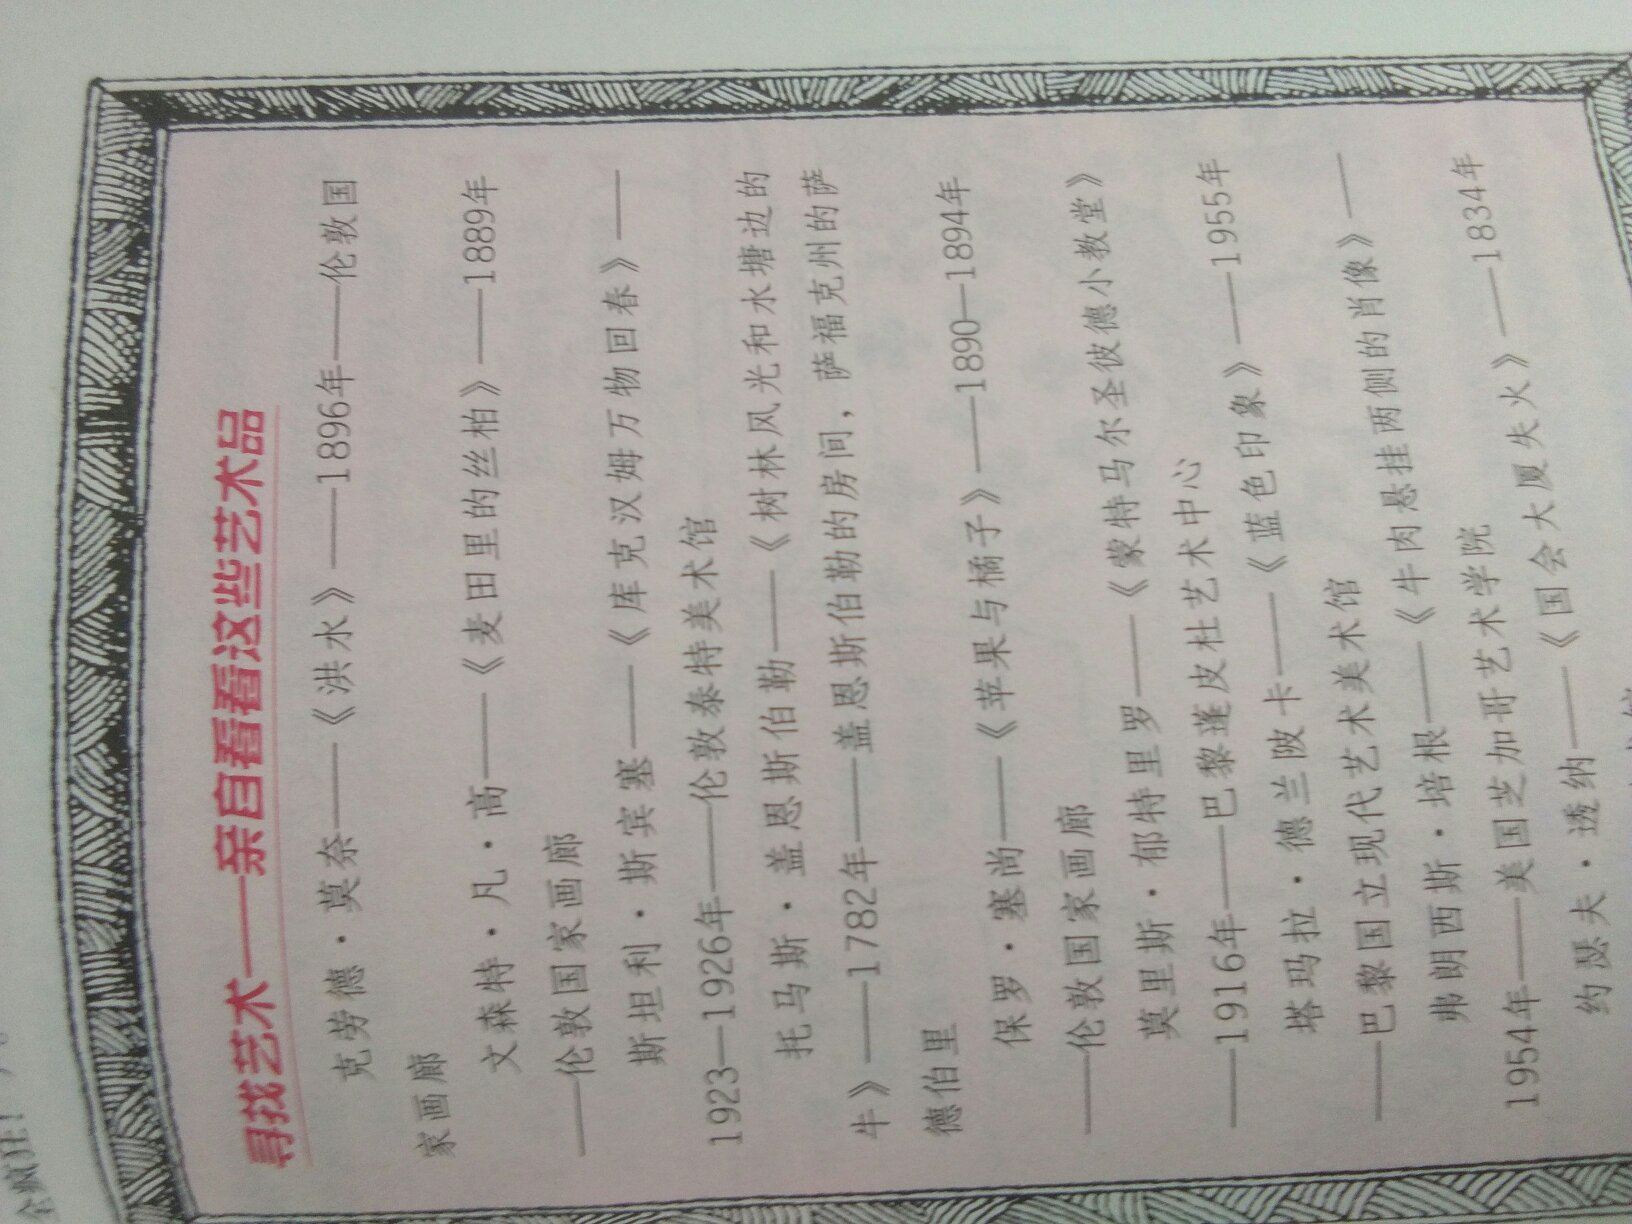 寻找艺术——亲自看看这些艺术品
克劳德·莫奈——《洪水》——1896年——伦敦国
家画廊
文森特·凡·高——《麦田里的丝柏》——1889年
——伦敦国家画廊
斯坦利·斯宾塞——《库克汉姆万物回春》——
1923—1926年——伦敦泰特美术馆
托马斯·盖恩斯伯勒——《树林风光和水塘边的
牛》——1782年——盖恩斯伯勒的房间，萨福克州的萨
德伯里
保罗·塞尚——《苹果与橘子》——1890—1894年
——伦敦国家画廊
莫里斯·郁特里罗——《蒙特马尔圣彼德小教堂》
——1916年——巴黎蓬皮杜艺术中心
塔玛拉·德兰陂卡——《蓝色印象》——1955年
——巴黎国立现代艺术美术馆
弗朗西斯·培根——《牛肉悬挂两侧的肖像》——
1954年——美国芝加哥艺术学院
约瑟夫·透纳——《国会大厦失火》——1834年